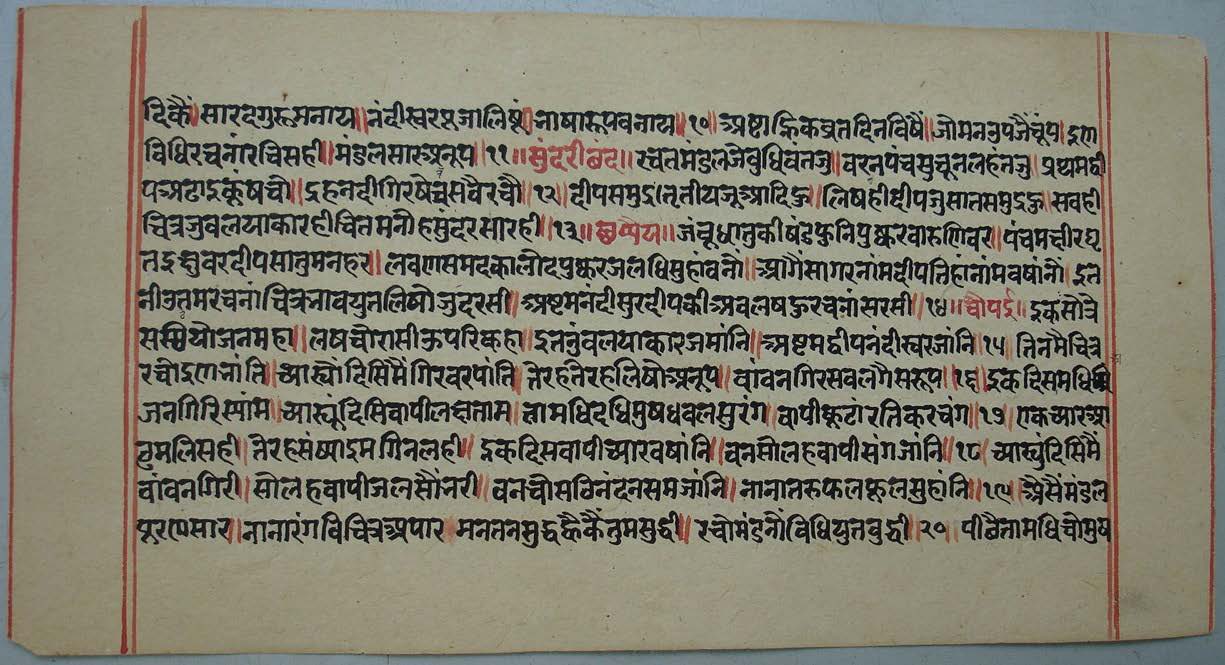 दिकैं॥सारदगुरूमनाय॥नंदीस्वरपूजालिषूं॥भाषारूपवनाय॥१०॥अष्टाह्निकव्रतदिनविषैं॥
विधिरचनारचिसही॥मंडलसारअनूप॥११॥सुंदरीछंद॥रचेतमंडलजेवुधिवंतजु॥वरनपंचसुचूनलहंतजु॥प्रथमही
पअढाइकूंषचौ॥इहनदीगिरषेत्रसवैरचौ॥१२॥दीपसमुद्रतृतीयजुआदिकु॥लिषहीदीपजुसातसमुद्रकु॥सवही
चित्रजुवलयाकारही॥चितमनौहसुंदरसारही॥१३॥छप्पैय॥जंवूधातुकीषंडफुनिपुष्करवारुणिवर॥पंचमषीरघृ
तइक्षुवरदीपसातुमनहर॥लवणसमदकालोदपुष्करजलधिसुहांवनौ॥आगैंसागरनांमदीपतिहांनांमवषांनौ॥इत
नीउतमरचनांचित्रनावयुतलिषौजुदरसी॥अष्टमनंदीसुरदीपकीअवलषकुरचनांसरसी॥१४॥चौपई॥इकसौत्रे
सस्थियोजनमहा॥लषचौरासीऊपरिकहा॥इतनुंवलयाकारजमांनि॥अष्टमद्वीपनंदीस्वरजांनि॥१५॥तिनमैचित्र
रचौइणभांति॥च्यास्यौंदिसिमैंगिरवरपांति॥तेरहतेरहलिषौअनूप॥वांवनगिरसवलगैसरूप॥१६॥इकदिसमधि
जनगिरिस्यांम॥च्यास्यूंदिसिवापीलछतास॥तामधिदधिमुषधवलसुरंग॥वापीकूटांरतिकरचंग॥१७॥एकच्यारआ
ठमलिसही॥तेरहसंष्याइमगिनलही॥इकदिसवापीच्यारवषांनि॥वनसोलहवापीसंगजांनि॥१८॥च्यास्यूंदिसिमैं
वांवनगिरी॥सोलहवापीजलसौंभरी॥वनचौसठिनंदनसमजांनि॥नानातरुफलफूलसुहांनि॥१९॥असैंमंडल
पूरणसार॥नानारंगविचित्रअपार॥मनतनसुद्धकैकैंतुमसुद्धी॥रचौमंडनौंविधियुतवुद्धी॥२०॥पीठैतामधिचौमुष